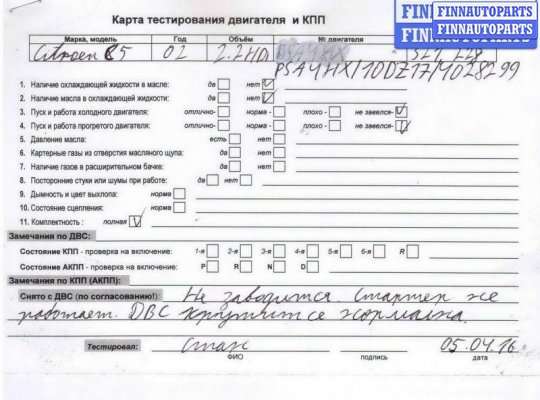 FINNAUTOPARTS
FINNAUTOPARTS
Карта тестирования двигателя и КПП
Марка, модель Год Объём № двигателя
Citroen C5 02 2.2HDi
PSA4HX/10DZ17/4028299
1. Наличие охлаждающей жидкости в масле: да нет
2. Наличие масла в охлаждающей жидкости: да нет
3. Пуск и работа холодного двигателя: отлично- норма - плохо - не завелся-
4. Пуск и работа прогретого двигателя: отлично- норма - плохо - не завелся-
5. Давление масла: есть нет
6. Картерные газы из отверстия масляного щупа: да нет
7. Наличие газов в расширительном бачке: да нет
8. Посторонние стуки или шумы при работе: да нет
9. Дымность и цвет выхлопа: норма
10. Состояние сцепления: норма
11. Комплектность : полная
Замечания по ДВС:
Состояние КПП - проверка на включение: 1-я 2-я 3-я 4-я 5-я 6-я R
Состояние АКПП - проверка на включение: P R N D
Замечания по КПП (АКПП):
Снято с ДВС (по согласованию!) Не заводится. Стартер не
работает. ДВС крутится нормально.
Тестировал: Стах 05.04.16
ФИО подпись дата